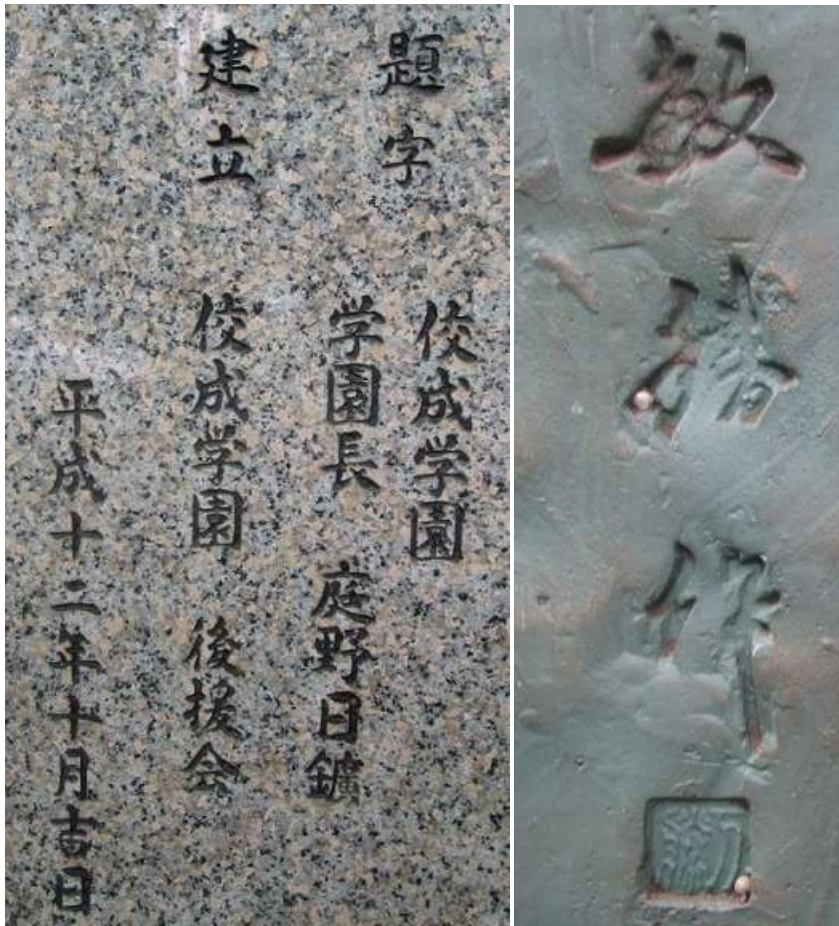 題字 佼成学園
学園長 庭野日鑛
建立 佼成学園 後援会
平成十二年十月吉日
作